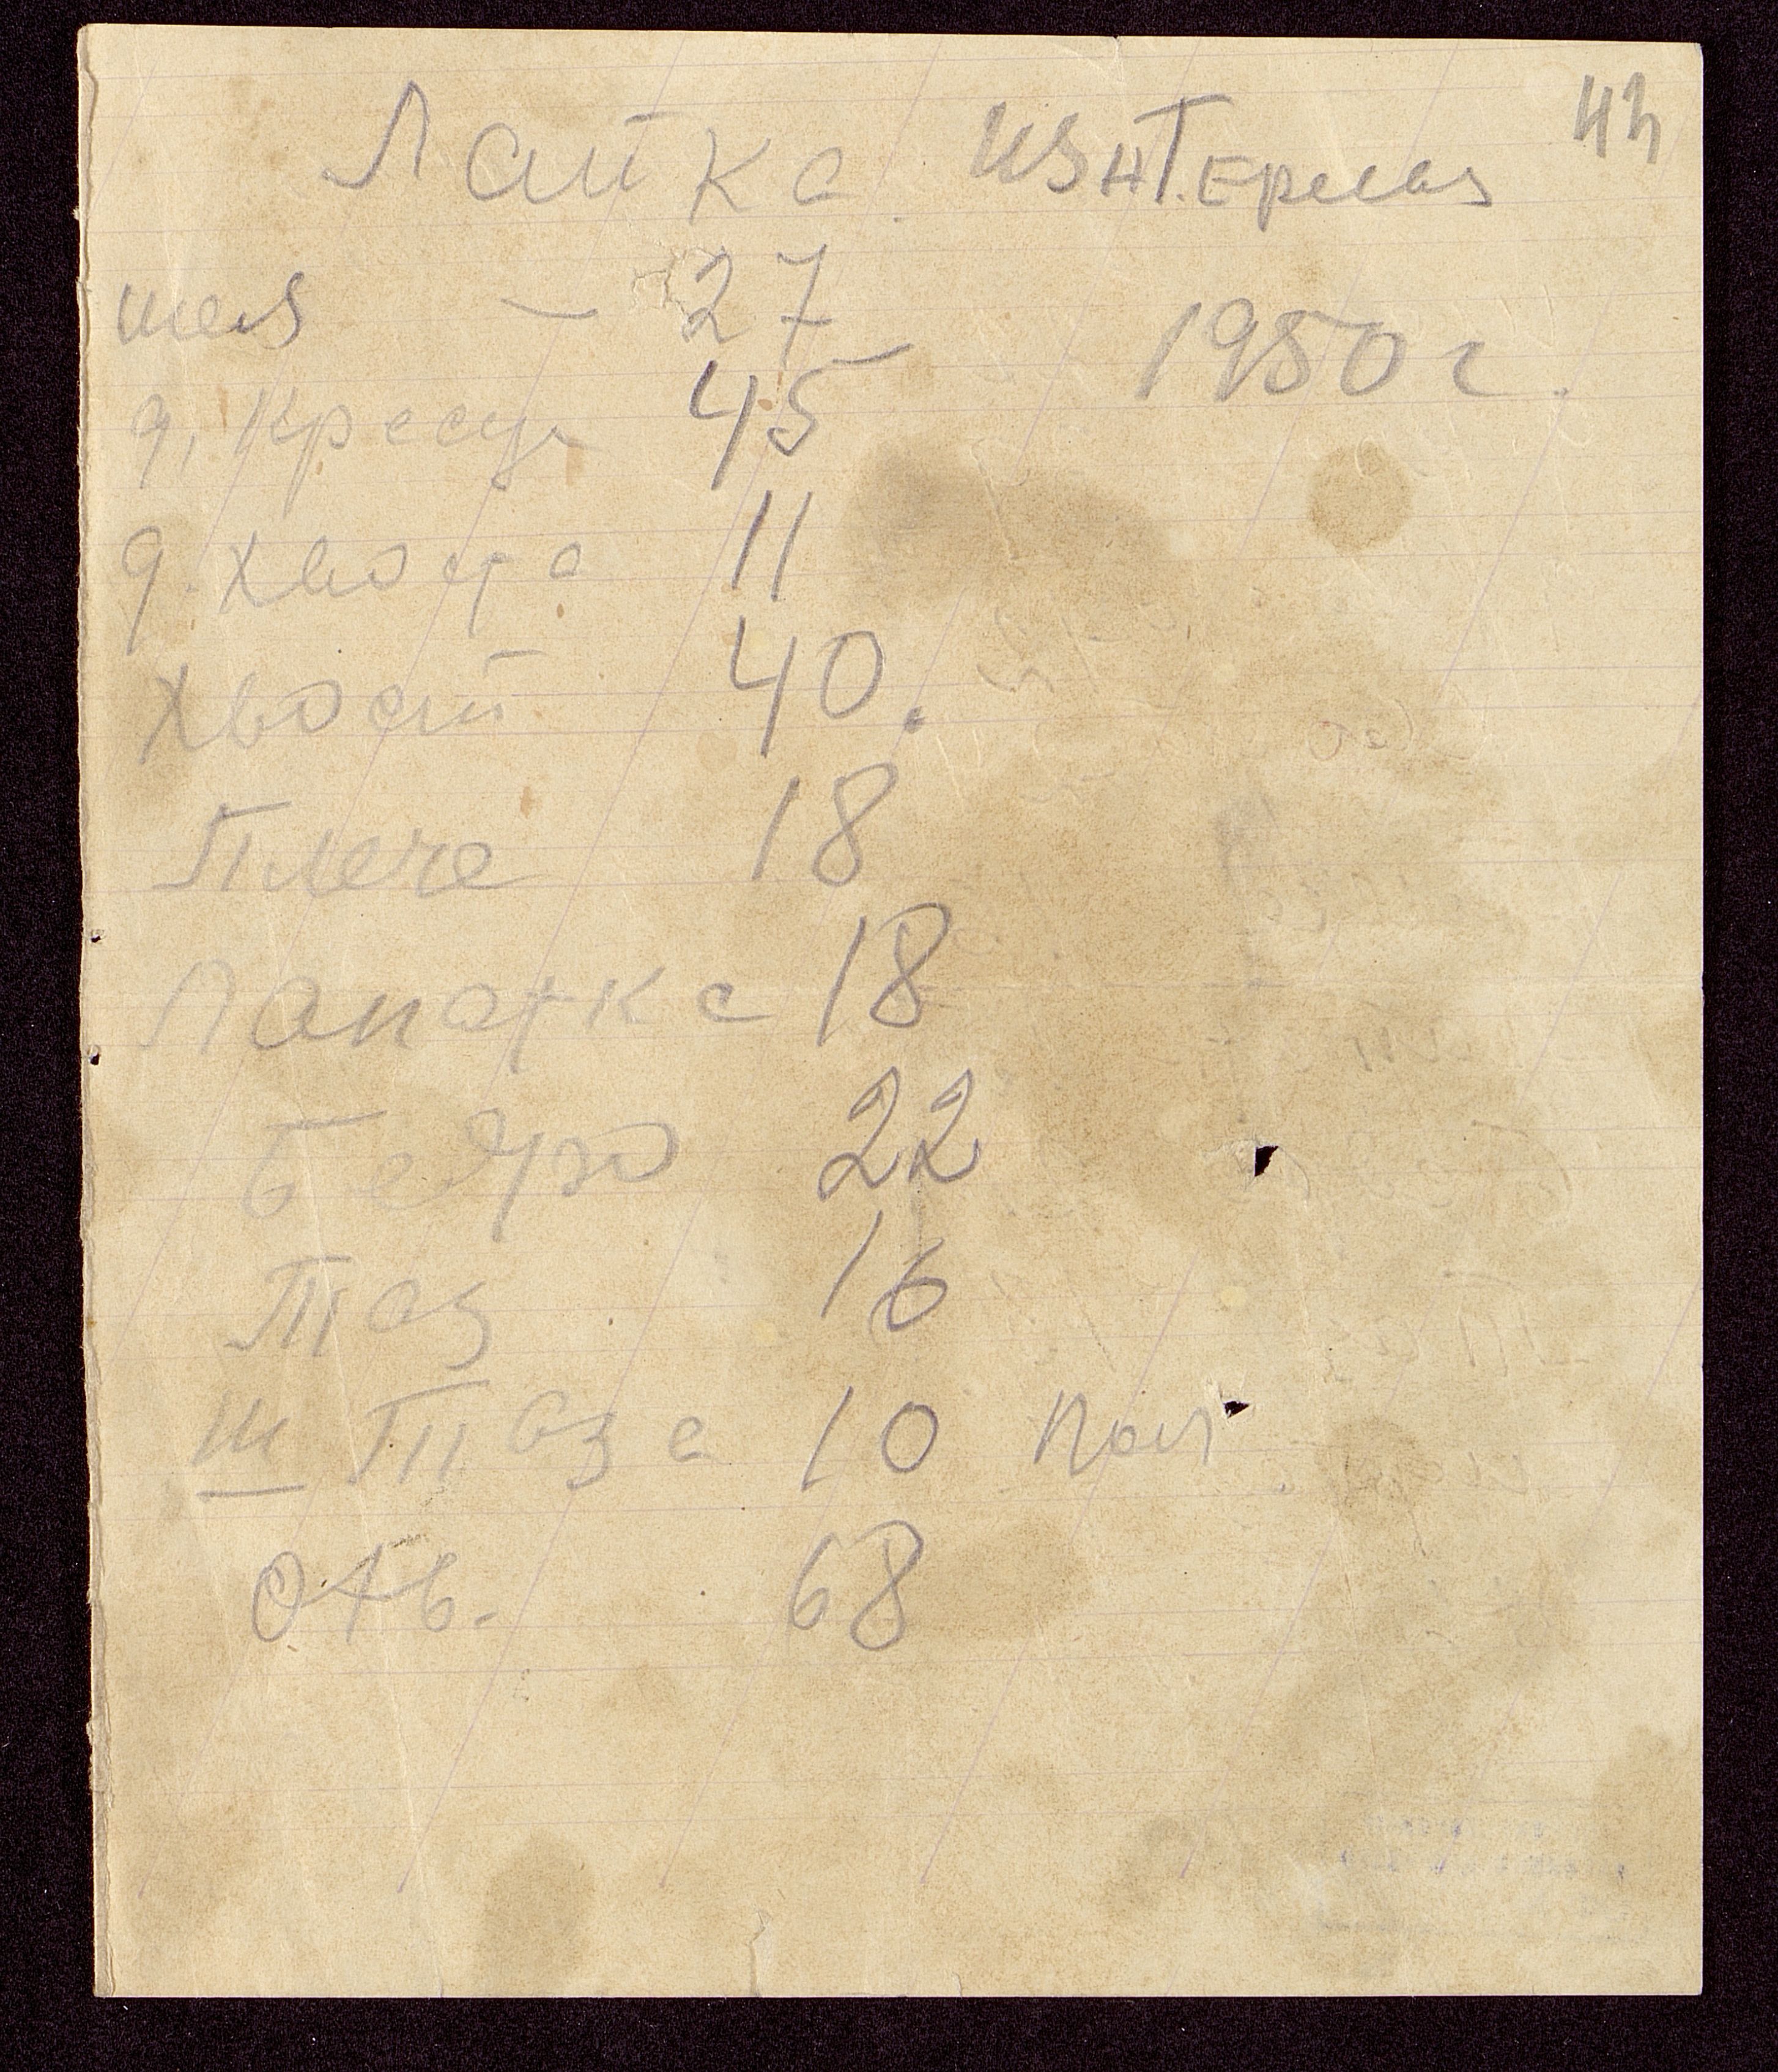 44
Лайка. из н.т. ермая
шея — 27
1950 г.
д. кресц 45
д. хвоста 11
хвост 40.
Плече 18
Лапатка 18
бедро 22
Таз 16
Ш Таза 10 Пол
Отв. 68